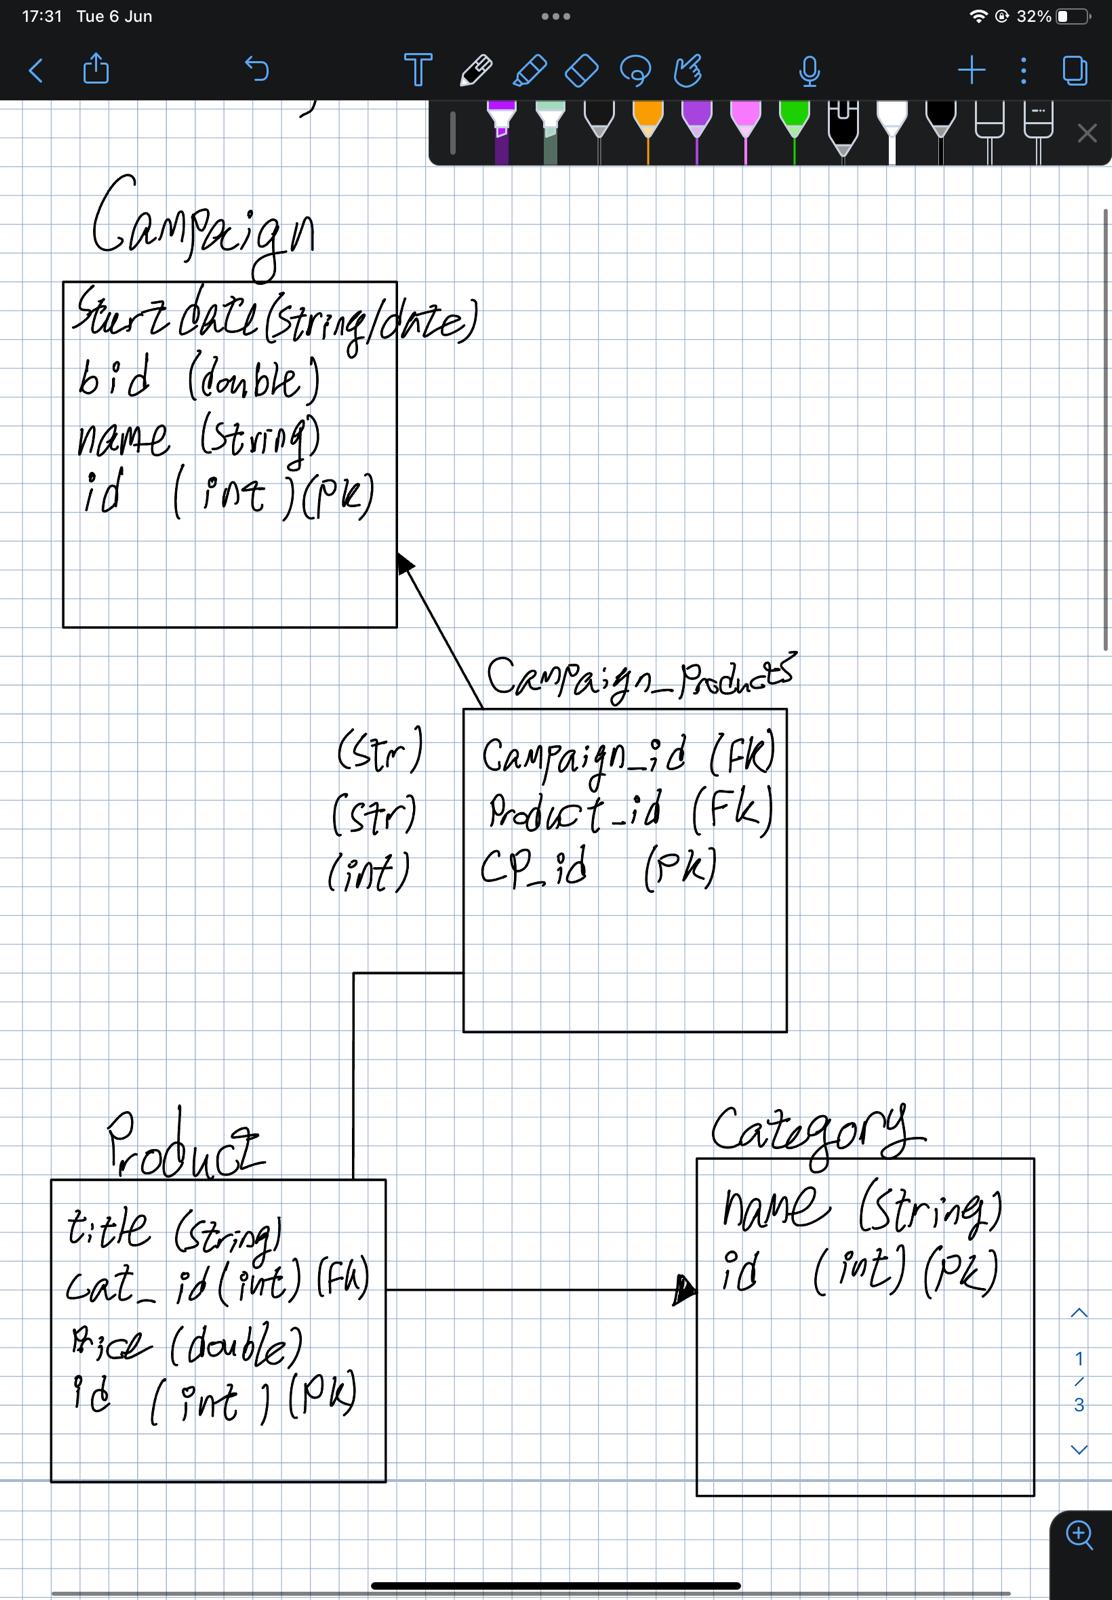 17:31 Tue 6 Jun
32%
Campaign
Start date (string/date)
bid (double)
name (string)
id (int) (PK)
Campaign_Products
(str) Campaign_id (FK)
(str) Product_id (FK)
(int) CP_id (PK)
Product
title (string)
cat_id (int) (FK)
Price (double)
id (int) (PK)
Category
name (string)
id (int) (PK)
1
/
3